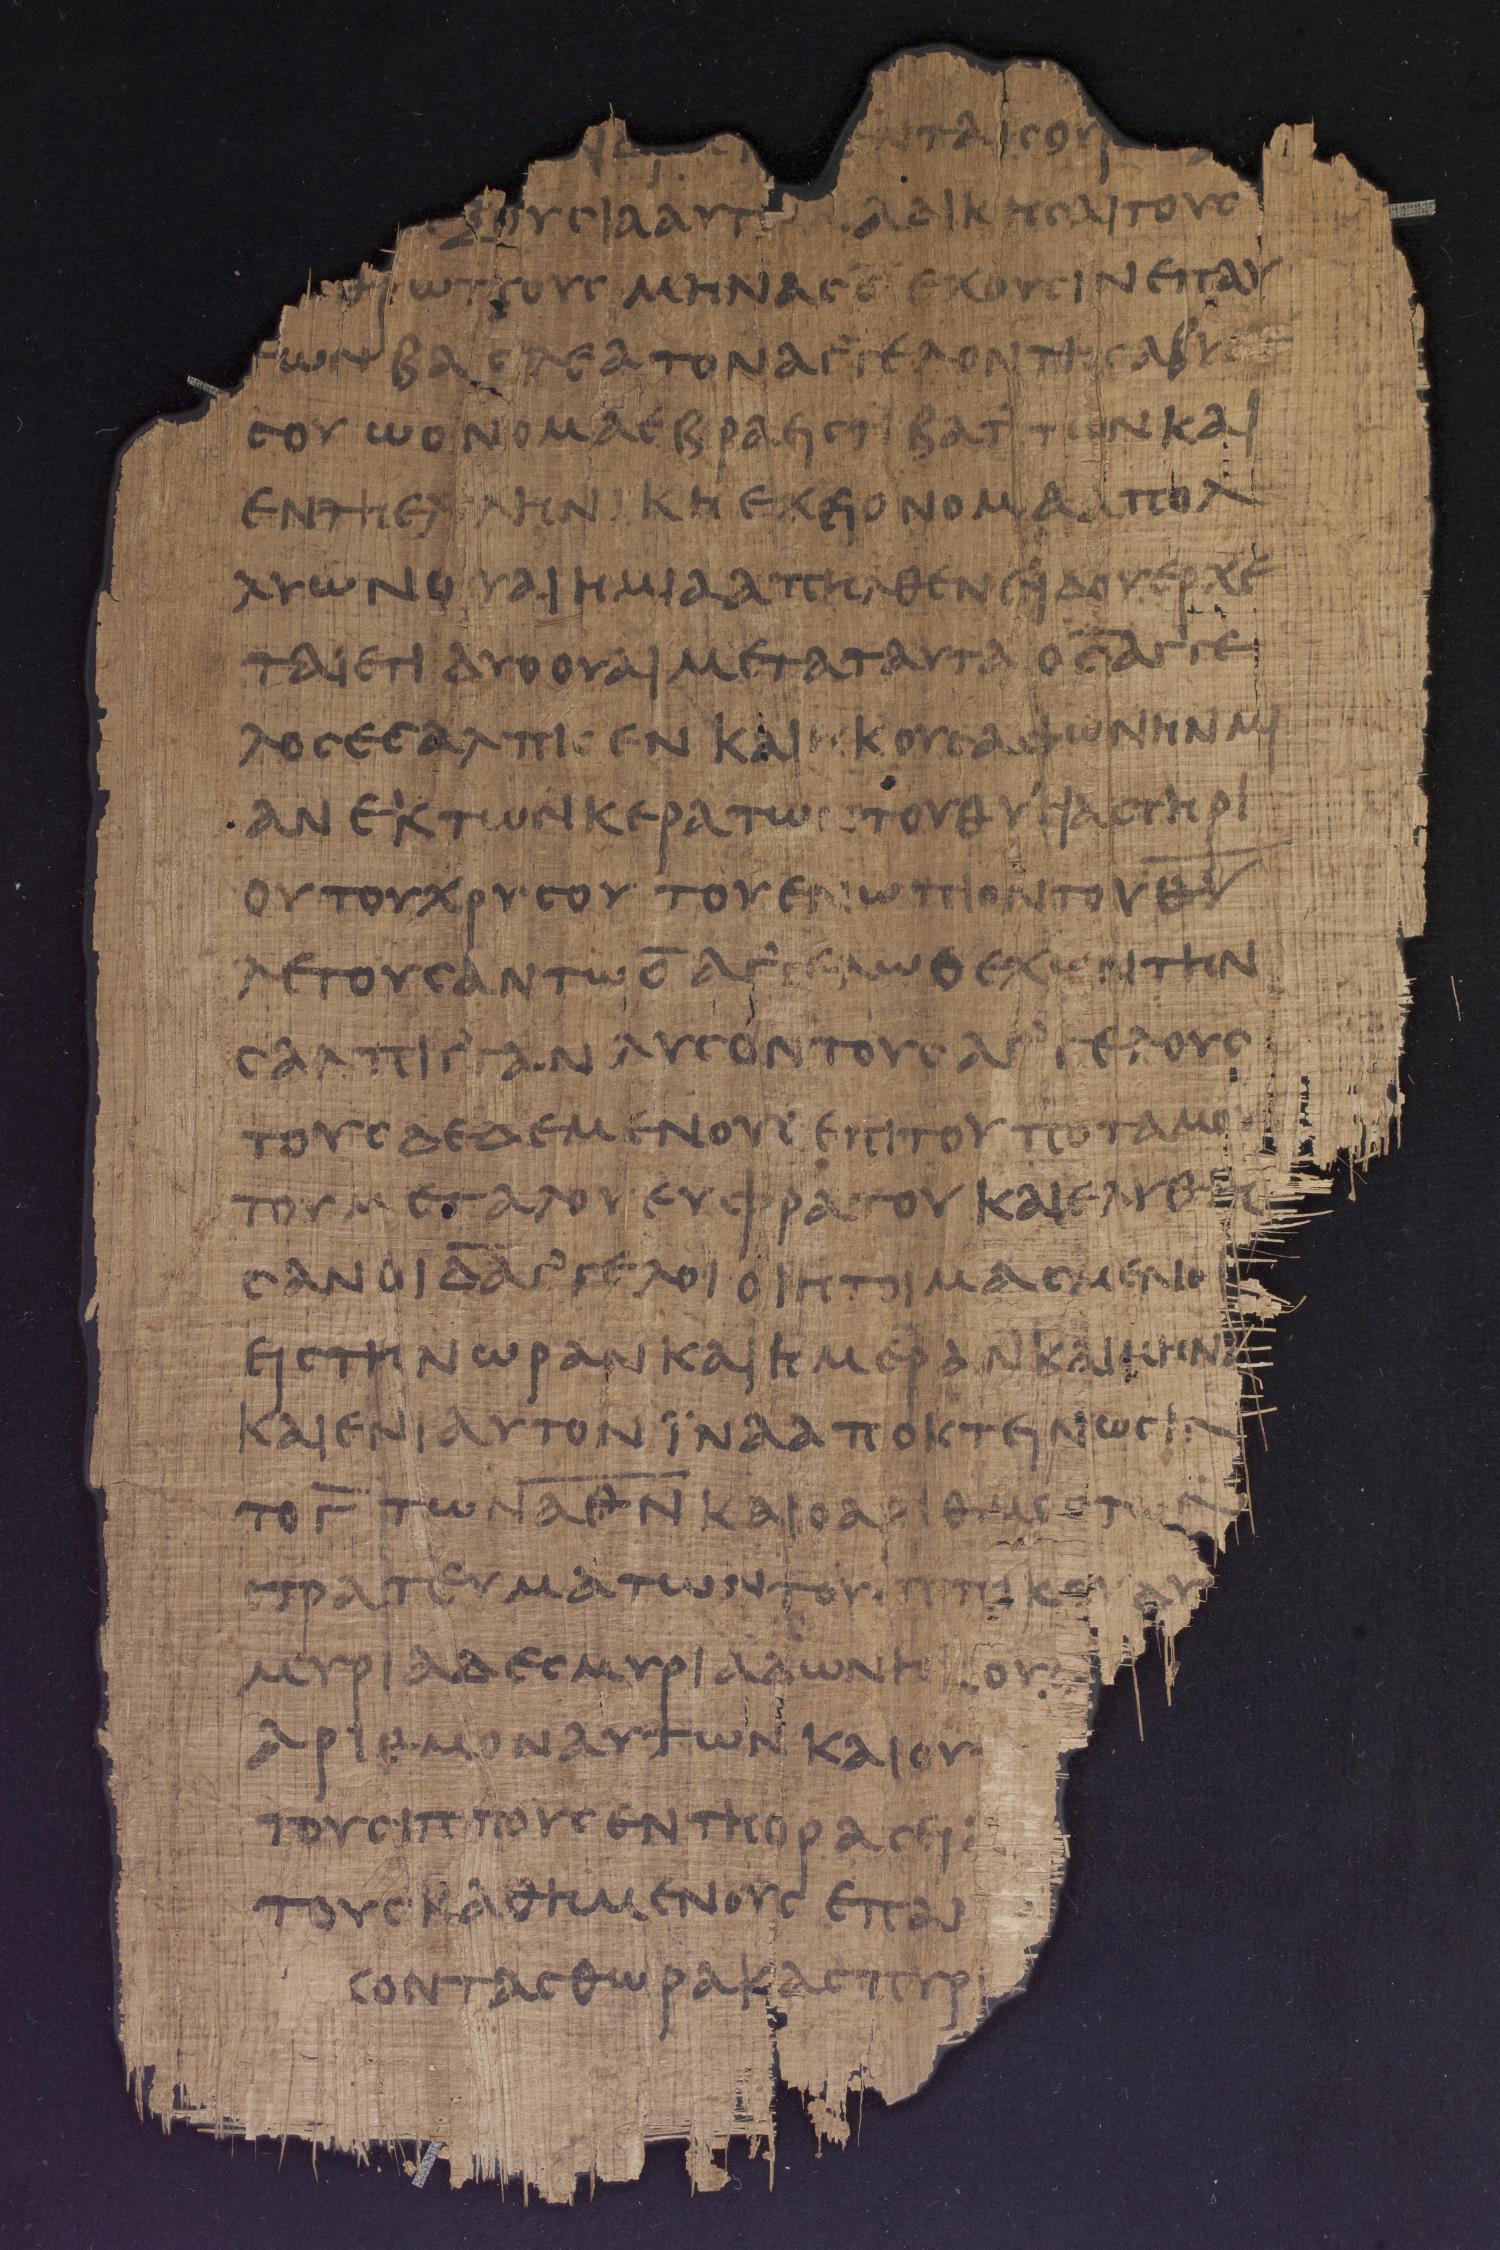 κεντρα και εν ταις ουρ
εξουσια αυτων αδικησαι τους
ανθρωπους μηνας ε̅ εχουσιν επαυ
των βασιλεα τον αγ'γελον της αβυσ
σου ω ονομα εβραειστι βατ'των και
εν τη ελληνικη εχει ονομα απολ
λυων ουαι η μια απηλθεν ειδου ερχε
ται ετι δυο ουαι μετα ταυτα ο ε̅ αγ'γε
λος εσαλπισεν και ηκουσα φωνην μι
αν εκ των κερατων του θυσιαστηρι
ου του χρυσου του ενωπιον του θ̅υ̅
λεγουσαν τω ϛ̅ αγ'γελω ο εχων την
σαλπιγ'γαν λυσον τους αγ'γελους
τους δεδεμενους επι του ποταμου
του μεγαλου ευφρατου και ελυθη
σαν οι δ̅ αγ'γελοι οι ητοιμασμενοι
εις την ωραν και ημεραν και μηνα
και ενιαυτον ϊνα αποκτεινωσιν
το γ̅ των α̅ν̅θ̅ν̅ και ο αριθμος των
στρατευματων του ιππικου δυο
μυριαδες μυριαδων ηκουσα
αριθμον αυτων και ου
τους ιππους εν τη ορασει
τους καθημενους επ αυ
εχοντας θωρακας πυρι